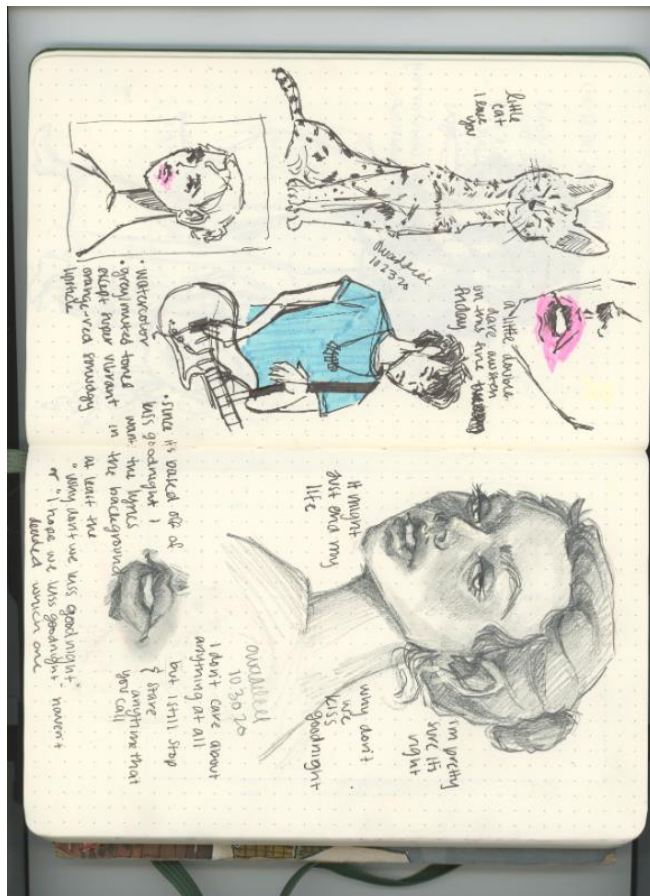 little
cat
I love
you
10 23 20
a little double
dare awsten
on this fine
friday
• watercolor
• gray/muted toned
except super vibrant
orange-red smudgy
lipstick
• since it's based off of
kiss goodnight I
want the lyrics
in the background
at least the
"why don't we kiss goodnight"
or "I hope we kiss goodnight" haven't
decided which one
It might
just end my
life
I'm pretty
sure it's
right
why don't
we
kiss
goodnight
10 30 20
I don't care about
anything at all
but I still stop
& stare
anytime that
you call